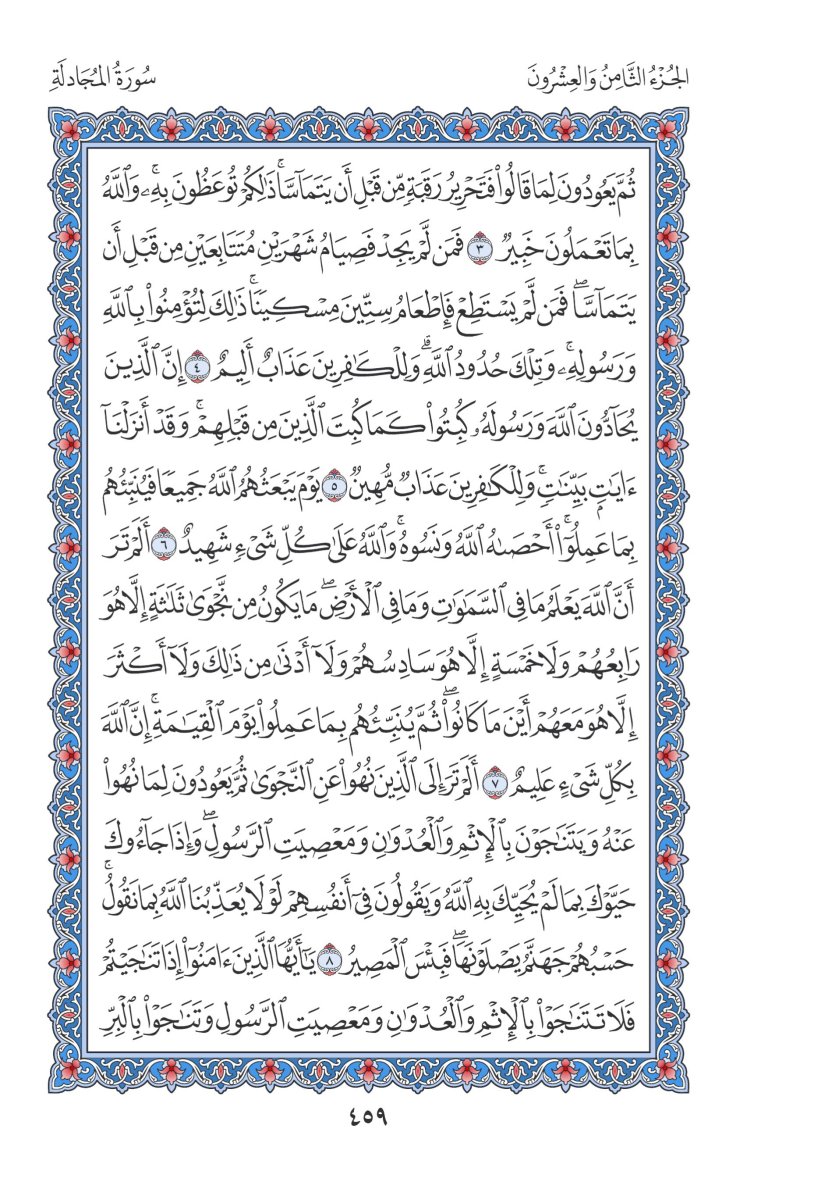 الجُزْءُ الثَّامِنُ وَالعِشْرُونَ
سُورَةُ المُجَادلَةِ
ثُمَّ يَعُودُونَ لِمَا قَالُواْ فَتَحْرِيرُ رَقَبَةٍ مِّن قَبْلِ أَن يَتَمَآسَّاۚ ذَٰلِكُمْ تُوعَظُونَ بِهِۦۚ وَٱللَّهُ
بِمَا تَعْمَلُونَ خَبِيرٌ ٣ فَمَن لَّمْ يَجِدْ فَصِيَامُ شَهْرَيْنِ مُتَتَابِعَيْنِ مِن قَبْلِ أَن
يَتَمَآسَّاۖ فَمَن لَّمْ يَسْتَطِعْ فَإِطْعَامُ سِتِّينَ مِسْكِينًاۚ ذَٰلِكَ لِتُؤْمِنُواْ بِٱللَّهِ
وَرَسُولِهِۦۚ وَتِلْكَ حُدُودُ ٱللَّهِۗ وَلِلْكَٰفِرِينَ عَذَابٌ أَلِيمٌ ٤ إِنَّ ٱلَّذِينَ
يُحَآدُّونَ ٱللَّهَ وَرَسُولَهُۥ كُبِتُواْ كَمَا كُبِتَ ٱلَّذِينَ مِن قَبْلِهِمْۚ وَقَدْ أَنزَلْنَآ
ءَايَٰتٍۭ بَيِّنَٰتٍۚ وَلِلْكَٰفِرِينَ عَذَابٌ مُّهِينٌ ٥ يَوْمَ يَبْعَثُهُمُ ٱللَّهُ جَمِيعًا فَيُنَبِّئُهُم
بِمَا عَمِلُوٓاْۚ أَحْصَىٰهُ ٱللَّهُ وَنَسُوهُۚ وَٱللَّهُ عَلَىٰ كُلِّ شَىْءٍ شَهِيدٌ ٦ أَلَمْ تَرَ
أَنَّ ٱللَّهَ يَعْلَمُ مَا فِى ٱلسَّمَٰوَٰتِ وَمَا فِى ٱلْأَرْضِۖ مَا يَكُونُ مِن نَّجْوَىٰ ثَلَٰثَةٍ إِلَّا هُوَ
رَابِعُهُمْ وَلَا خَمْسَةٍ إِلَّا هُوَ سَادِسُهُمْ وَلَآ أَدْنَىٰ مِن ذَٰلِكَ وَلَآ أَكْثَرَ
إِلَّا هُوَ مَعَهُمْ أَيْنَ مَا كَانُواْۖ ثُمَّ يُنَبِّئُهُم بِمَا عَمِلُواْ يَوْمَ ٱلْقِيَٰمَةِۚ إِنَّ ٱللَّهَ
بِكُلِّ شَىْءٍ عَلِيمٌ ٧ أَلَمْ تَرَ إِلَى ٱلَّذِينَ نُهُواْ عَنِ ٱلنَّجْوَىٰ ثُمَّ يَعُودُونَ لِمَا نُهُواْ
عَنْهُ وَيَتَنَٰجَوْنَ بِٱلْإِثْمِ وَٱلْعُدْوَٰنِ وَمَعْصِيَتِ ٱلرَّسُولِۖ وَإِذَا جَآءُوكَ
حَيَّوْكَ بِمَا لَمْ يُحَيِّكَ بِهِ ٱللَّهُ وَيَقُولُونَ فِىٓ أَنفُسِهِمْ لَوْلَا يُعَذِّبُنَا ٱللَّهُ بِمَا نَقُولُۚ
حَسْبُهُمْ جَهَنَّمُ يَصْلَوْنَهَاۖ فَبِئْسَ ٱلْمَصِيرُ ٨ يَٰٓأَيُّهَا ٱلَّذِينَ ءَامَنُوٓاْ إِذَا تَنَٰجَيْتُمْ
فَلَا تَتَنَٰجَوْاْ بِٱلْإِثْمِ وَٱلْعُدْوَٰنِ وَمَعْصِيَتِ ٱلرَّسُولِ وَتَنَٰجَوْاْ بِٱلْبِرِّ
٤٥٩